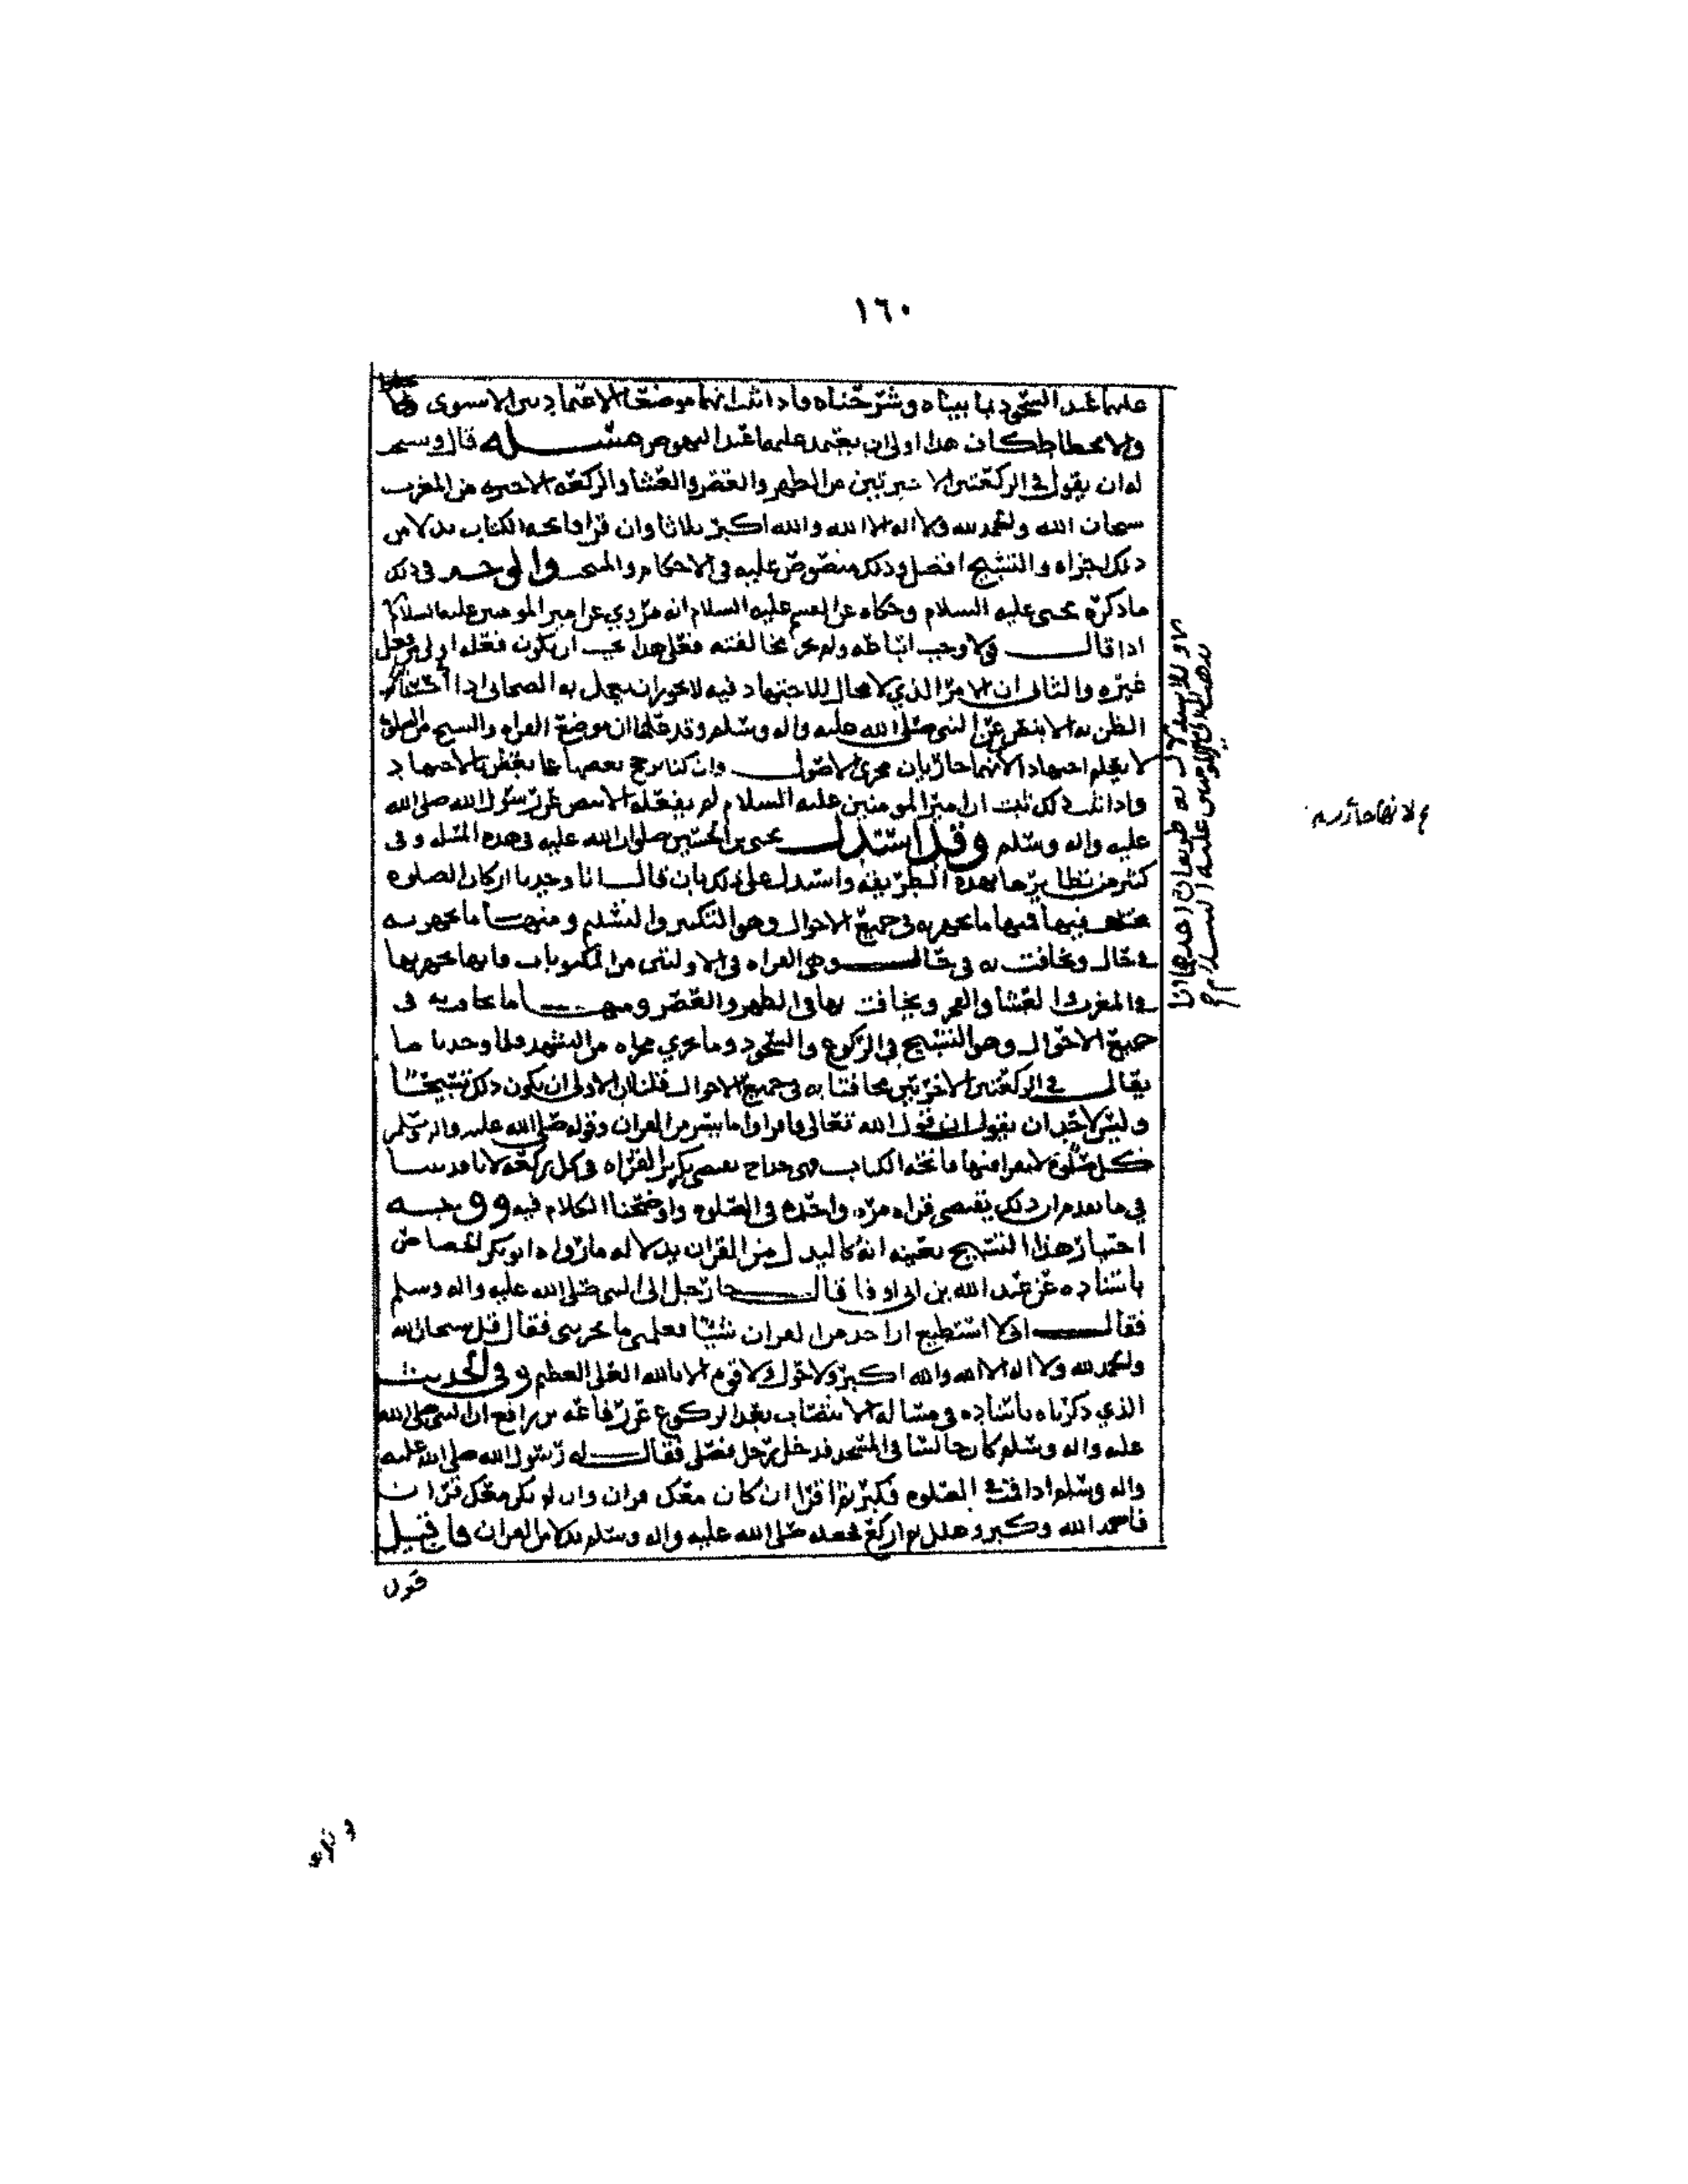 ١٦٠
عليهما عند السجود بما بيناه وشرحناه فاذا ثبت انهما موضعا الاعتماد
والانحطاط كان هذا اولى ان يعتمد عليهما عند النهوض مسئلة قال ويستحب
له ان يقول في الركعتين الاخيرتين من الظهر والعصر والعشا والركعة الاخيره من المغرب
سبحان الله والحمد لله ولا اله الا الله والله اكبر ثلاثا وان قرا فاتحه الكتاب بدلا من
ذلك اجزاه والتسبيح افضل وذلك منصوص عليه في الاحكام والمنتخب والوجه في ذلك
ما ذكره يحيى عليه السلام وحكاه عن القسم عليه السلام انه مروي عن امير المومنين عليه السلام
اذا قال قولا وجب اتباعه ولم يجز مخالفته فعلى هذا يجب ان يكون فعله اولى من فعل
غيره والثاني ان الامر الذي لا مجال للاجتهاد فيه لا يجوز ان يعمل به الصحابي اذا احسنا
الظن به الا بنص عن النبي صلى الله عليه واله وسلم وقد علمنا ان موضع القراه والتسبيح من الصلوة
لا يعلم اجتهادا لانهما جاريان مجرى الاصول وان كنا نرجح بعضها على بعض بالاجتهاد
واذا ثبت ذلك ثبت ان امير المومنين عليه السلام لم يفعله الا بنص عن رسول الله صلى الله
عليه واله وسلم وقد استدل يحيى بن الحسين صلوات الله عليه في هذه المسئله وفي
كثير من نظايرها بهذه الطريقه واستدل على ذلك بان قال انا وجدنا اركان الصلوه
فمنها ما يجهر به في جميع الاحوال وهو التكبير والتسليم ومنها ما يجهر به
في حال ويخافت به في حال وهي القراه في الاولتين من المكتوبات فانها يجهر بها
في المغرب والعشا والفجر ويخافت بها في الظهر والعصر ومنها ما يخافت به في
جميع الاحوال وهو التسبيح في الركوع والسجود وما جرى مجراه من التشهد فلما وجدنا ما
يقال في الركعتين الاخرتين مخافتا به في جميع الاحوال قلنا ان الاولى ان يكون ذلك تسبيحا
وليس لاحد ان يقول ان قول الله تعالى فاقراوا ما تيسر من القران وقوله صلى الله عليه واله وسلم
كل صلوة لا يقرا فيها فاتحه الكتاب فهي خداج يقتضي تكرير القراه في كل ركعة لانا قد بينا
في ما تقدم ان ذلك يقتضي قراه مره واحده في الصلوه واوضحنا الكلام فيه ووجه
اختيار هذا التسبيح بعينه انه كالبدل من القران بدلاله ما رواه ابو بكر الجصاص
باسناده عن عبد الله بن ابي اوفا قال جا رجل الى النبي صلى الله عليه واله وسلم
فقال اني لا استطيع ان اخذ من القران شيئا فعلمني ما يجزيني فقال قل سبحان الله
والحمد لله ولا اله الا الله والله اكبر ولا حول ولا قوه الا بالله العلي العظيم وفي الحديث
الذي ذكرناه باسناده في مسئالة الانتصاب بعد الركوع عن رفاعه بن رافع ان النبي صلى الله
عليه واله وسلم كان جالسا في المسجد فدخل رجل فصلى فقال له رسول الله صلى الله عليه
واله وسلم اذا قمت في الصلوه فكبر ثم اقرا ان كان معك قران وان لم يكن معك قران
فاحمد الله وكبر وهلل ثم اركع فجعله صلى الله عليه واله وسلم بدلا من القران فان قيل
قول